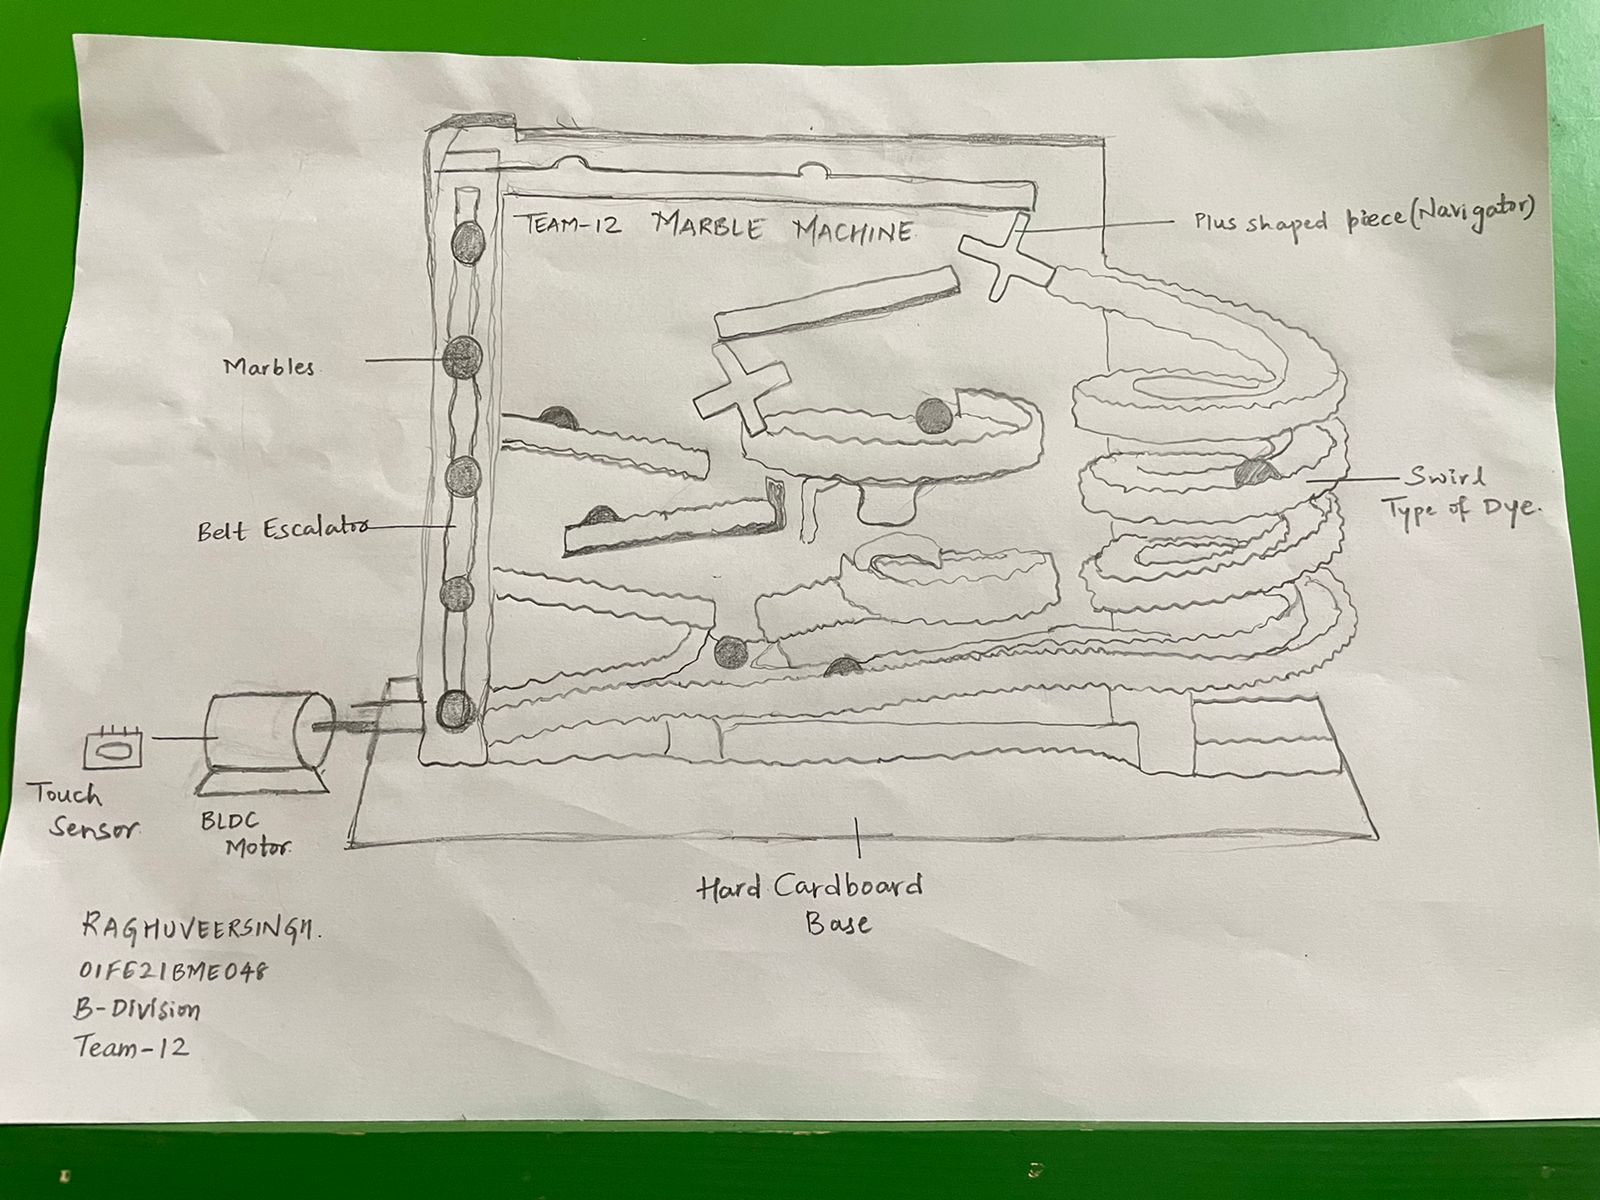 TEAM-12 MARBLE MACHINE
Plus shaped piece (Navigator)
Marbles
Belt Escalator
Swirl
Type of Dye.
Touch
Sensor
BLDC
Motor
Hard Cardboard
Base
RAGHUVEERSINGH.
01FE21BME048
B-Division
Team-12